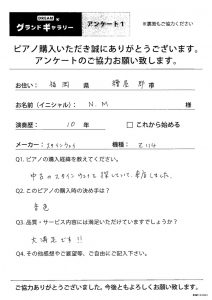 DREAM×
グランドギャラリー アンケート1 ※裏面もご協力ください
ピアノ購入いただき誠にありがとうございます。
アンケートのご協力お願い致します。
お住い： 福岡 県 糟屋 郡 市
お名前(イニシャル)： N.M 様
演奏歴： 10 年 □これから始める
メーカー： スタインウェイ 機種： Z114
Q1. ピアノの購入経緯を教えてください。
中古のスタインウェイを探していて、来店しました。
Q2. このピアノの購入時の決め手は？
音色
Q3. 品質・サービス内容には満足いただけていますでしょうか？
大満足です!!
Q4. その他感想やご要望等、ご自由にご記入下さい。
ご協力ありがとうございました。今後ともよろしくお願い致します。